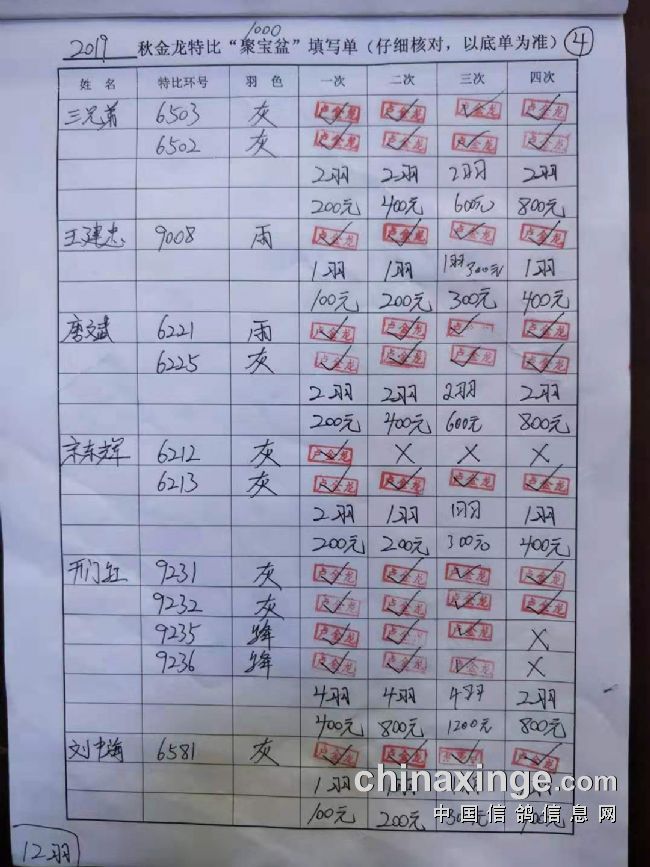 1000
2019 秋金龙特比“聚宝盆”填写单（仔细核对，以底单为准） ④
姓名 特比环号 羽色 一次 二次 三次 四次
三兄弟 6503 灰 卢金龙 卢金龙 卢金龙 卢金龙
6502 灰 卢金龙 卢金龙 卢金龙 卢金龙
2羽 2羽 2羽 2羽
200元 400元 600元 800元
王建忠 9008 雨 卢金龙 卢金龙 卢金龙 卢金龙
1羽 1羽 1羽300元 1羽
100元 200元 300元 400元
唐文斌 6221 雨 卢金龙 卢金龙 卢金龙 卢金龙
6225 灰 卢金龙 卢金龙 卢金龙 卢金龙
2羽 2羽 2羽 2羽
200元 400元 600元 800元
东辉 6212 灰 卢金龙 X X X
6213 灰 卢金龙 卢金龙 卢金龙 卢金龙
2羽 1羽 1羽 1羽
200元 200元 300元 400元
开门红 9231 灰 卢金龙 卢金龙 卢金龙 卢金龙
9232 灰 卢金龙 卢金龙 卢金龙 卢金龙
9235 绛 卢金龙 卢金龙 卢金龙 X
9236 绛 卢金龙 卢金龙 卢金龙 X
4羽 4羽 4羽 2羽
400元 800元 1200元 800元
刘中海 6581 灰 卢金龙 卢金龙 卢金龙 卢金龙
1羽
100元 200元 300元 400元
12羽
chinaxinge.com
中国信鸽信息网